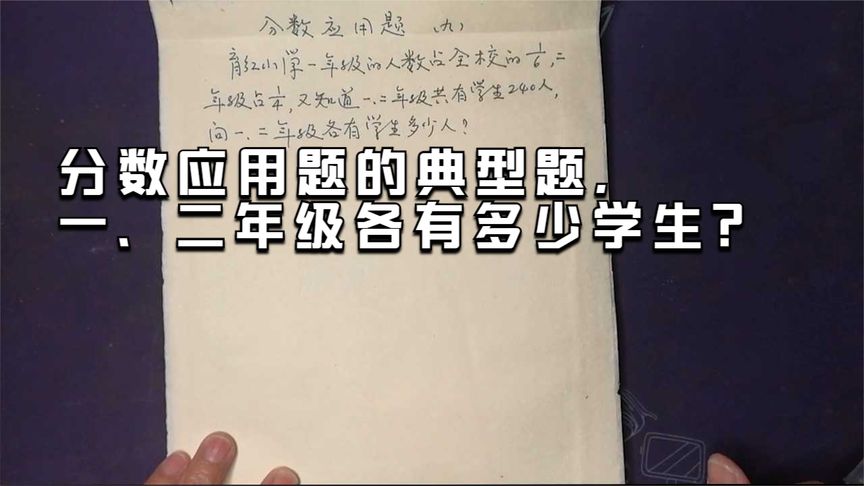 分数应用题(九)
育红小学一年级的人数占全校的1/6,二
年级占1/4,又知道一.二年级共有学生240人,
问一.二年级各有学生多少人?
分数应用题的典型题.
一、二年级各有多少学生?